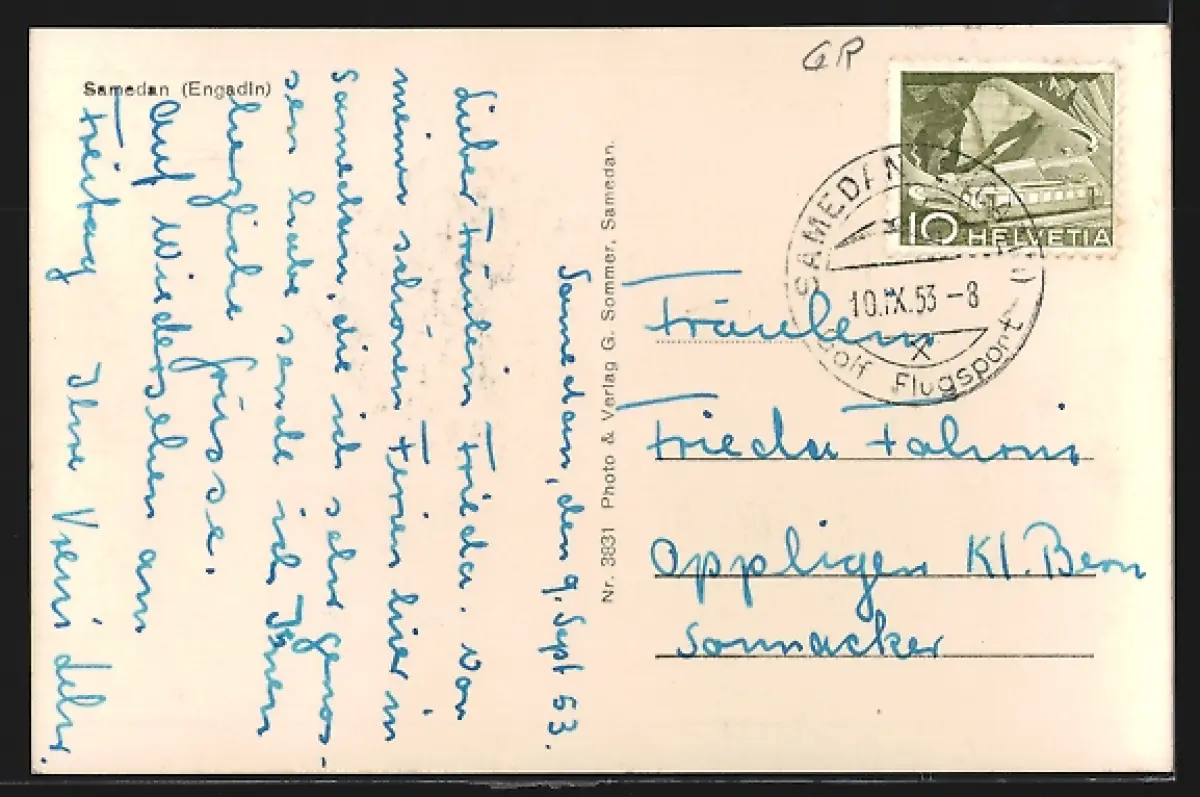 Samedan (Engadin)
Samedan, den 9. Sept 53.
Lieber Fräulein Frieda. Von
meinen schönen Ferien hier in
Samedan, die ich sehr genos-
sen habe sende ich Ihnen
herzliche Grüsse.
Auf Wiedersehen am
Freitag Ihre Vreni
Nr. 3831 Photo & Verlag G. Sommer, Samedan.
GR
10 HELVETIA
SAMEDAN
10.IX.53-8
Golf Flugsport
Fräulein
Frieda
Oppligen Kt. Bern
Sonnacker